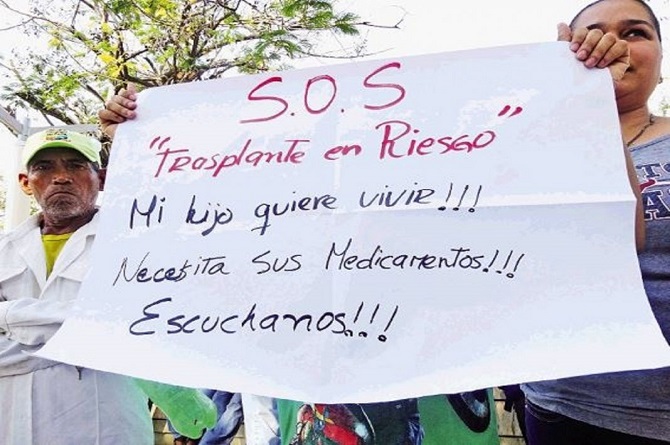 S.O.S
"Trasplante en Riesgo"
Mi hijo quiere vivir!!!
Necesita sus Medicamentos!!!
Escuchanos!!!